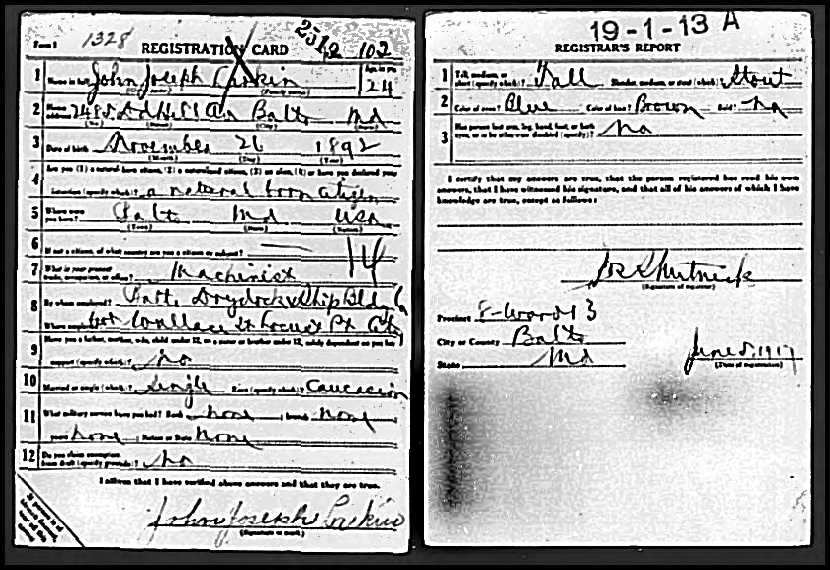 Form 1 1328 REGISTRATION CARD 2512 102
1 Name in full John Joseph Larkin Age, in yrs 24
(Family name)
2 Home address Ave Balto Md
(No.) (Street) (City) (State)
3 Date of birth November 26 1892
(Month) (Day) (Year)
Are you (1) a natural-born citizen, (2) a naturalized citizen, (3) an alien, (4) or have you declared your
4 intention (specify which)? a natural born citizen
5 Where were you born? Balto Md USA
(Town) (State) (Nation)
6 If not a citizen, of what country are you a citizen or subject?
14
7 What is your present trade, occupation, or office? Machinist
8 By whom employed? Balto Drydock & Ship Bldg Co
Where employed? Wallace St Locust Pt
Have you a father, mother, wife, child under 12, or a sister or brother under 12, solely dependent on you for
9 support (specify which)? No
10 Married or single (which)? Single Race (specify which)? Caucasian
11 What military service have you had? Rank none ; branch none
years none ; Nation or State None
12 Do you claim exemption from draft (specify grounds)? No
I affirm that I have verified above answers and that they are true.
John Joseph Larkin
(Signature or mark)
19-1-13 A
REGISTRAR'S REPORT
1 Tall, medium, or short (specify which)? Tall Slender, medium, or stout (which)? Stout
2 Color of eyes? Blue Color of hair? Brown Bald? No
3 Has person lost arm, leg, hand, foot, or both eyes, or is he otherwise disabled (specify)? No
I certify that my answers are true, that the person registered has read his own
answers, that I have witnessed his signature, and that all of his answers of which I have
knowledge are true, except as follows:
(Signature of registrar)
Precinct 8-Ward 13
City or County Balto
State Md June 5, 1917
(Date of registration)